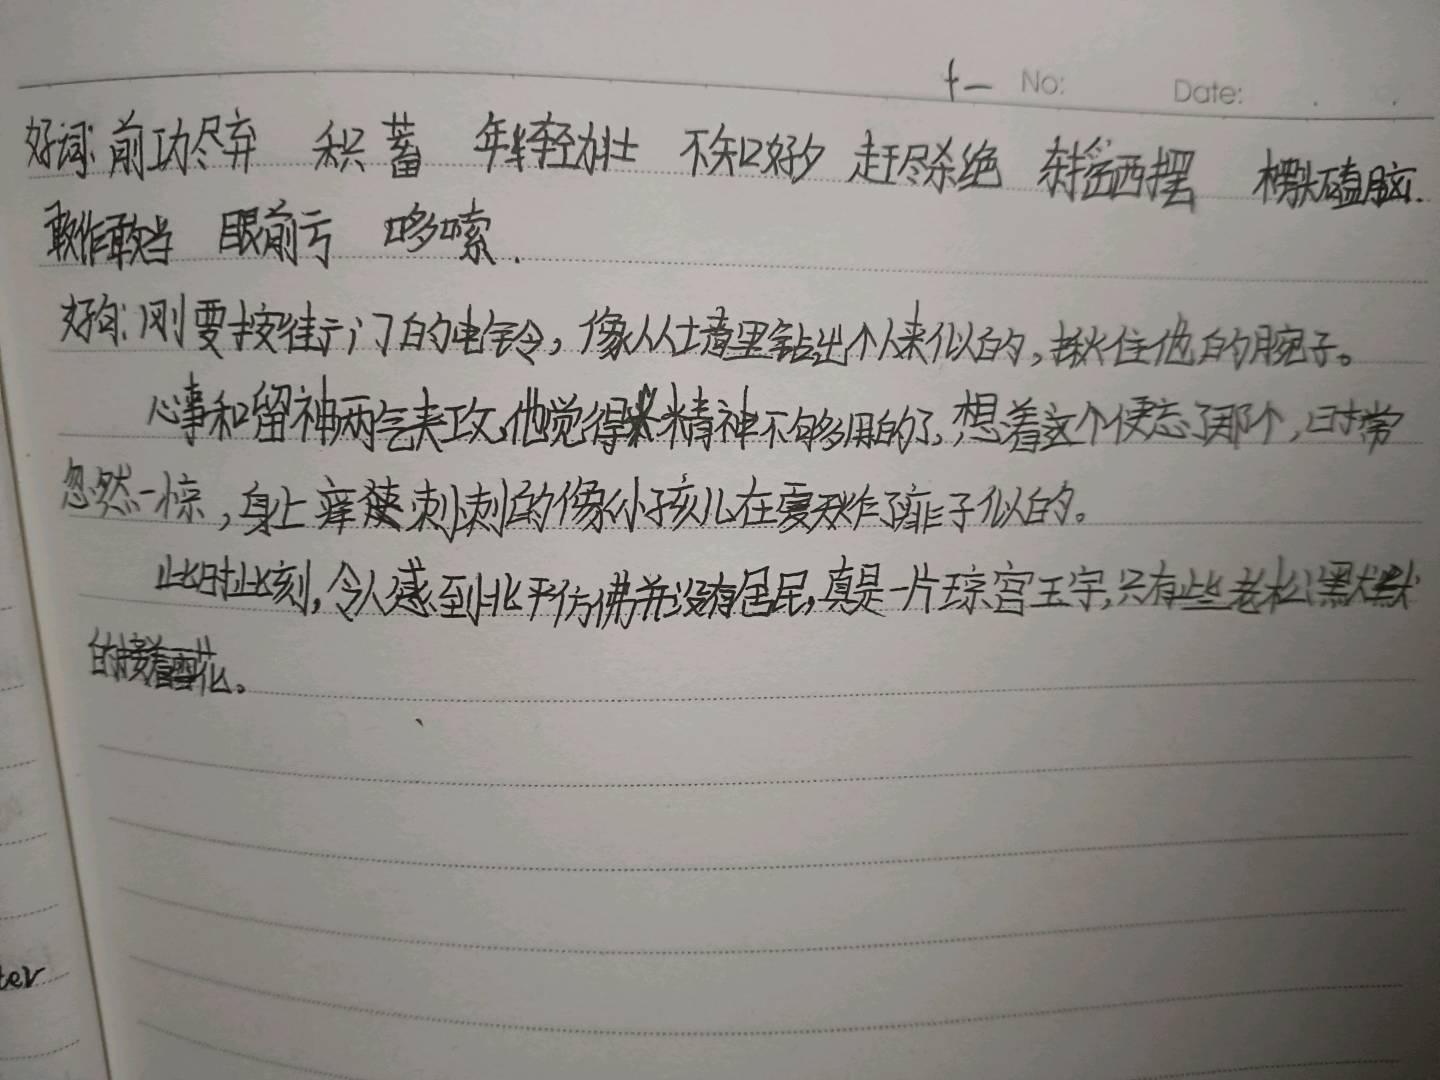 十一 No: Date:
好词:前功尽弃 积蓄 年轻力壮 不知好歹 赶尽杀绝 东摇西摆 楞头磕脑.
敢作敢当 眼前亏 哆嗦.
好句:刚要按街门的电铃,像从土墙里钻出个人来似的,揪住他的腕子。
心事和留神两气夹攻,他觉得精神不够用的了,想着这个便忘了那个,时常
忽然一惊,身上痒痒刺刺的像小孩儿在夏天炸了痱子似的。
此时此刻,令人感到北平仿佛并没有居民,真是一片琼宫玉宇,只有些老松默默
的接着雪花。
ter